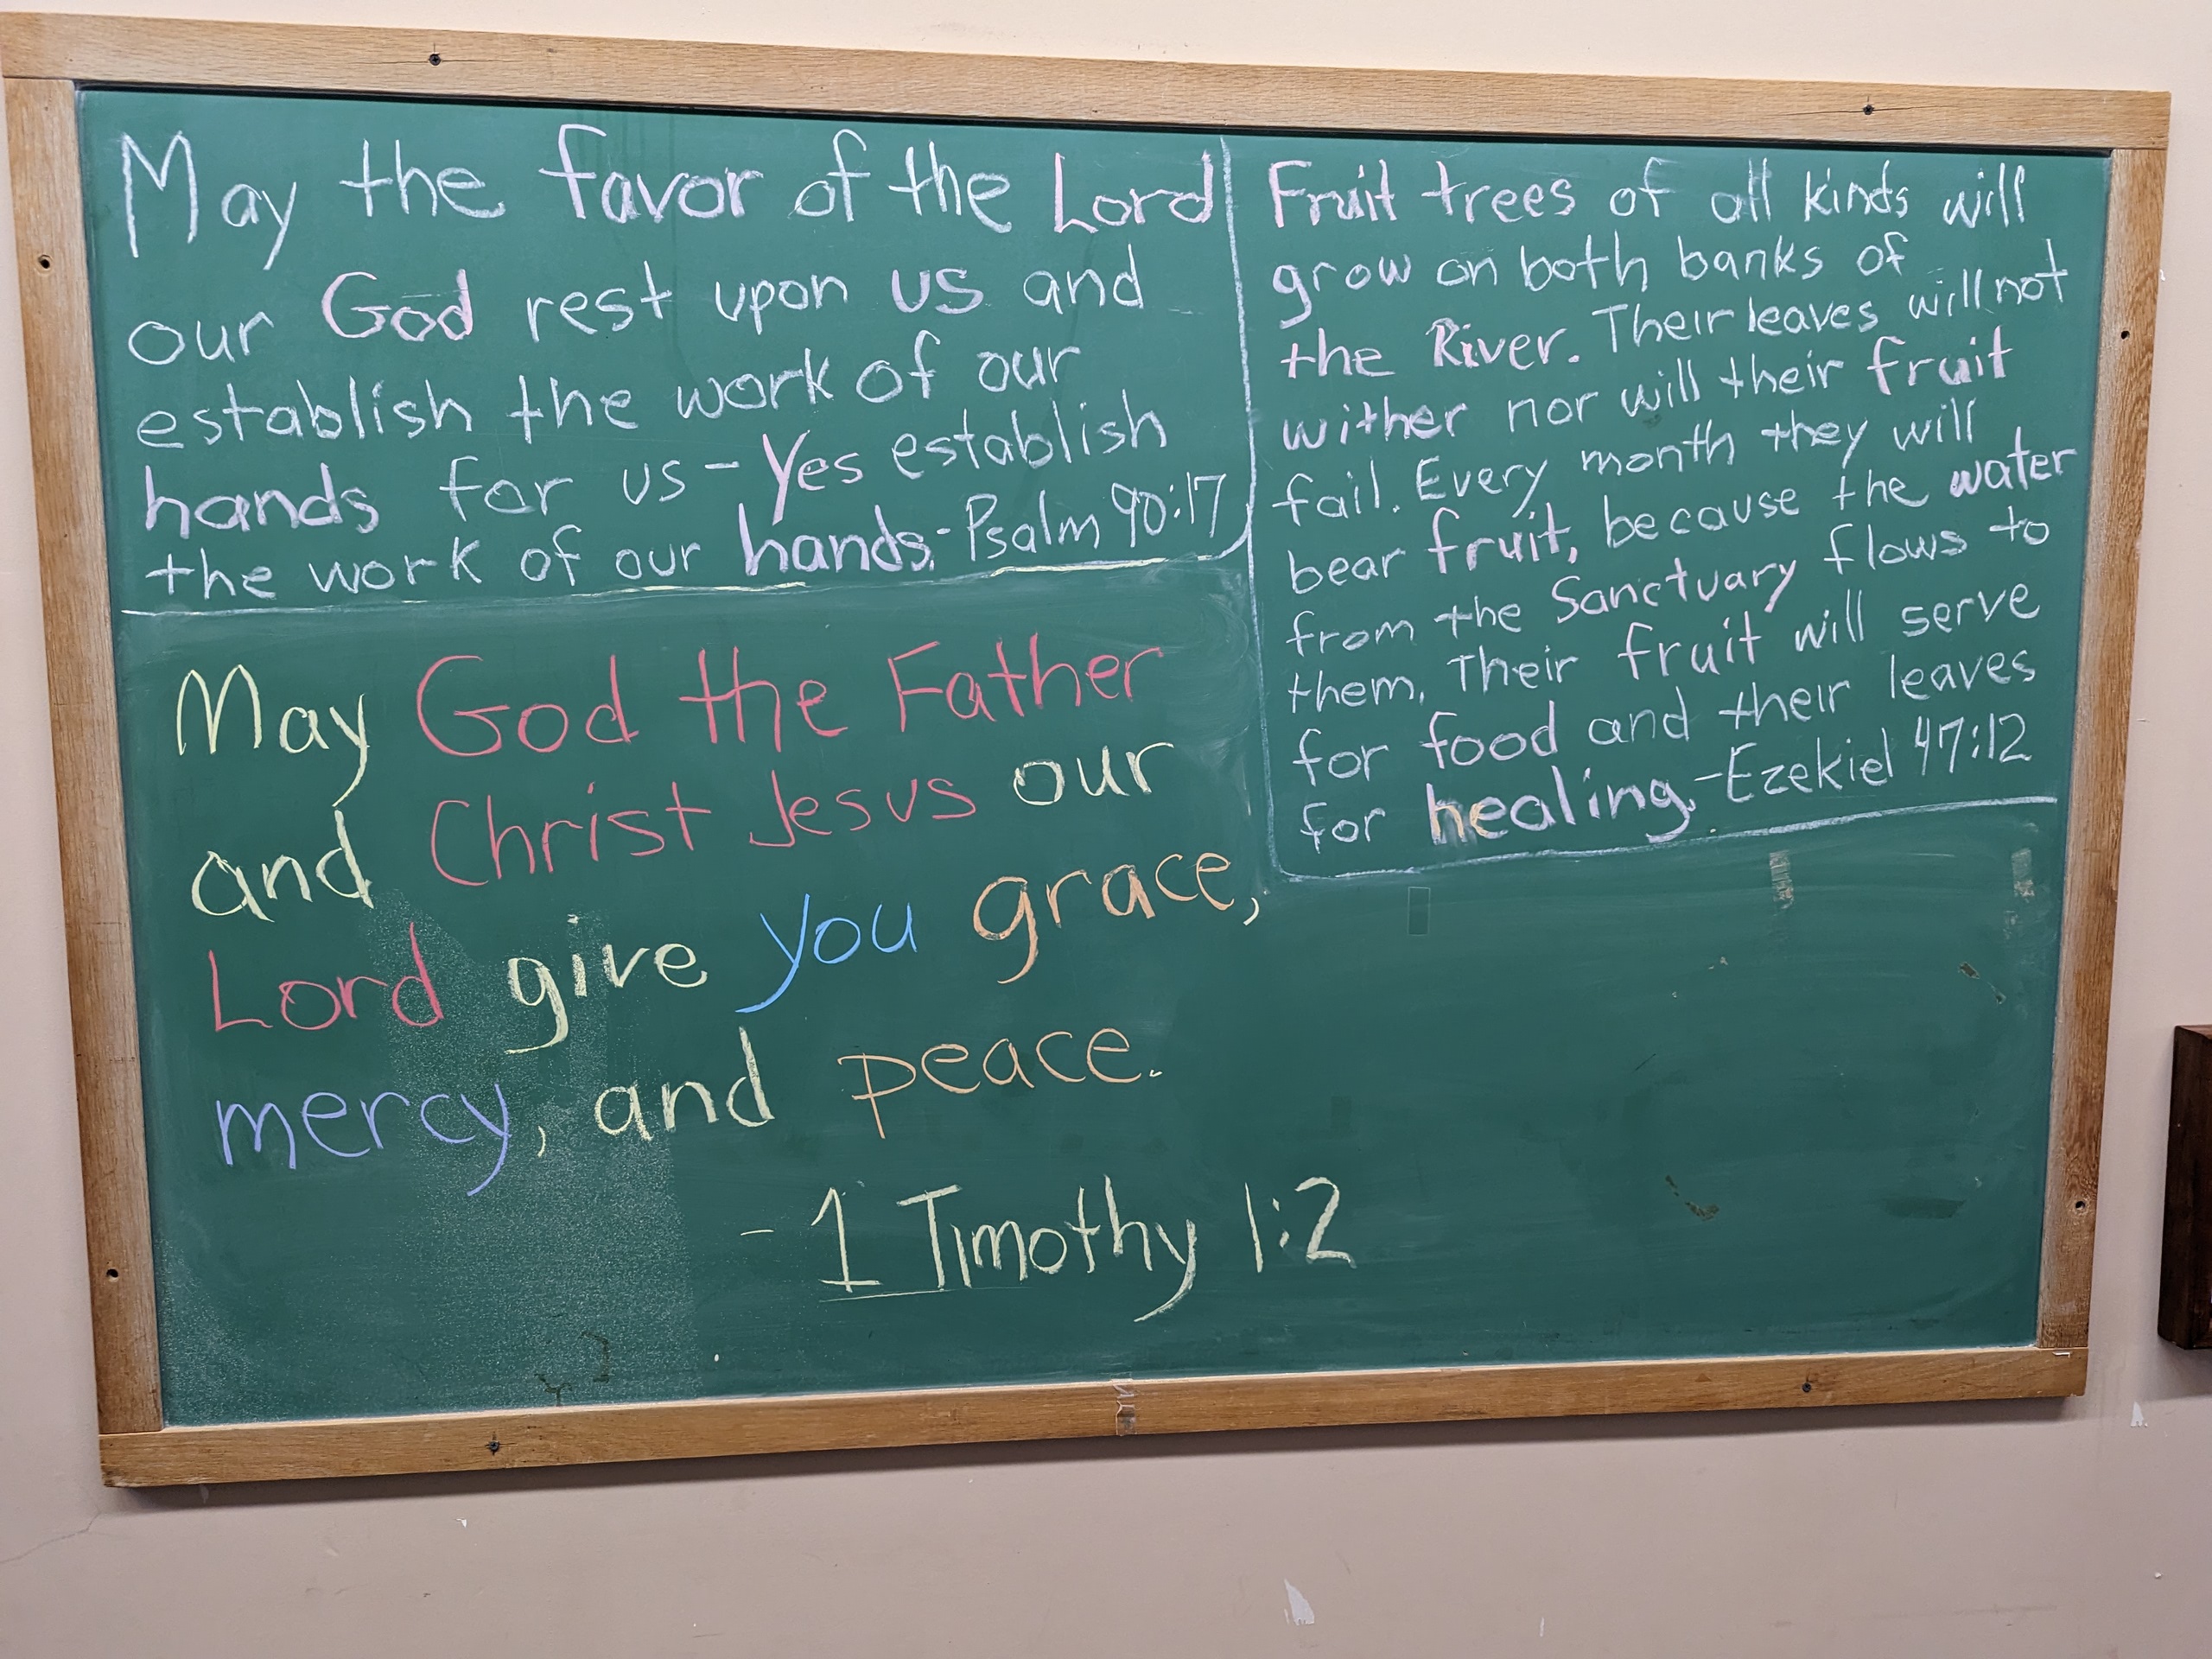 May the favor of the Lord
our God rest upon us and
establish the work of our
hands for us - Yes establish
the work of our hands. - Psalm 90:17
Fruit trees of all kinds will
grow on both banks of
the River. Their leaves will not
wither nor will their fruit
fail. Every month they will
bear fruit, because the water
from the Sanctuary flows to
them. Their fruit will serve
for food and their leaves
for healing. - Ezekiel 47:12
May God the Father
and Christ Jesus our
Lord give you grace,
mercy, and peace.
- 1 Timothy 1:2